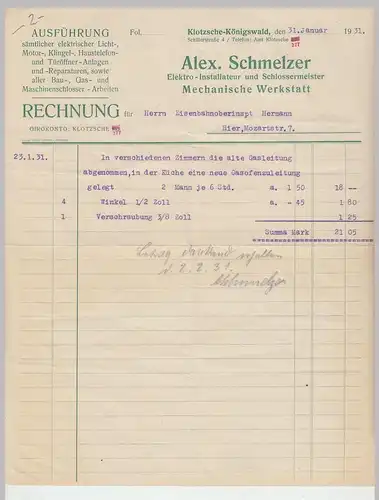 -2-
AUSFÜHRUNG
sämtlicher elektrischer Licht-,
Motor-, Klingel-, Haustelefon-
und Türöffner-Anlagen
und -Reparaturen, sowie
aller Bau-, Gas- und
Maschinenschlosser-Arbeiten
Fol.
Klotzsche-Königswald, den 31.Januar 1931.
Schillerstraße 4 / Telefon: Amt Klotzsche 317
Alex. Schmelzer
Elektro-Installateur und Schlossermeister
Mechanische Werkstatt
RECHNUNG für Herrn Eisenbahnoberinspt Hermann
GIROKONTO: KLOTZSCHE 317
Hier, Mozartstr,7.
23.1.31. In verschiedenen Zimmern die alte Gasleitung
abgenommen, in der Küche eine neue Gasofenzuleitung
gelegt 2 Mann je 6 Std. a. 1 50 18 --
4 Winkel 1/2 Zoll a. -45 1 80
1 Verschraubung 3/8 Zoll 1 25
Summa Mark 21 05
Betrag dankend erhalten
d. 2.2.31.
Schmelzer